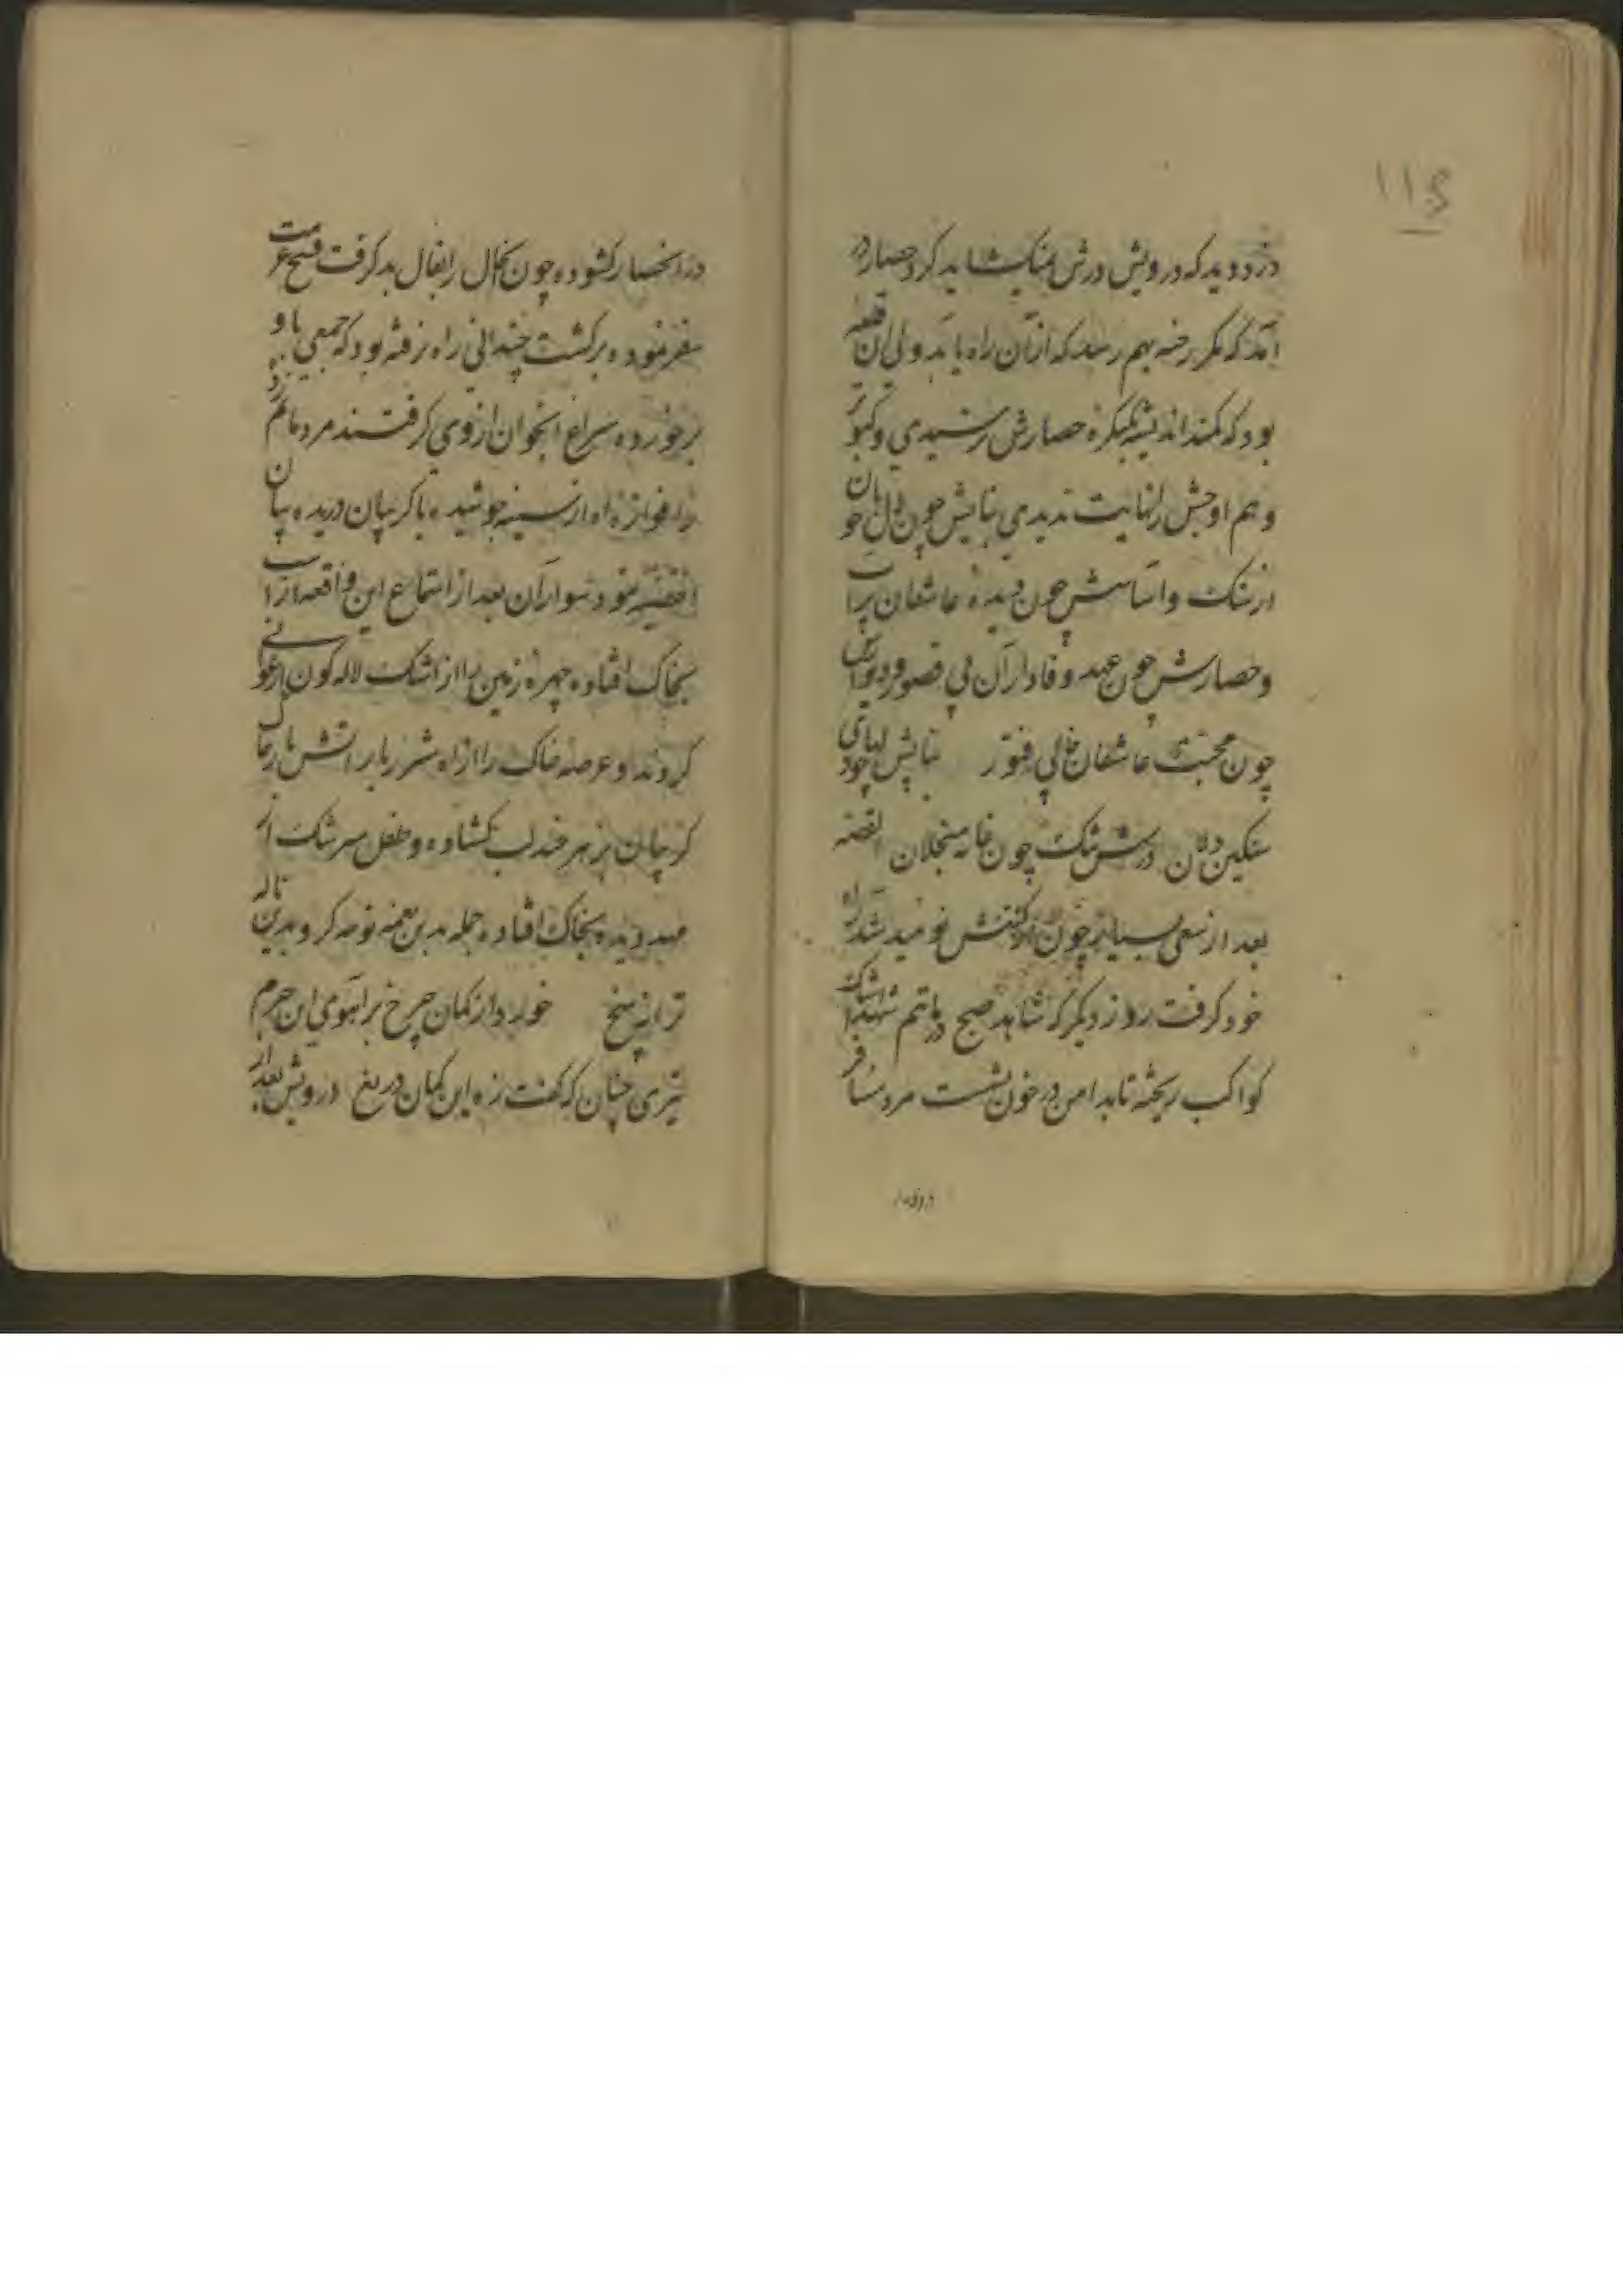 ۱۱۵
در دوید که درویش درش نمیکشاید کرد حصار در
آمد که مگر رخنه بهم رسد که از آن راه یابد ولی ان قلعه
بود که کمند اندیشه بکنکره حصارش نرسیدی و کبوتر
وهم اوجش را نهایت ندیدی بنایش چون دل خوبان
از سنک و اساسش چون دیده عاشقان پر اب
و حصارش چون عهد وفاداران بی قصور و دیوارش
چون محبت عاشقان خالی فتور بنایش چو
سنکین دلان درش تنک چون خانه منجلان القصه
بعد از سعی بسیار چون از نومید شد راه
خود کرفت روز دیگر که شاهد صبح در ماتم شهدا اشک
کواکب ریخته تا بدامن در خون نشست مرد مسافر
درانحصار کشوده چون بحال را بفال بد کرفت فسخ عزیمت
سفر نموده برکشت چندانی راه نرفته بود که جمعی باو
برخورده سراغ انجوان از وی کرفتند مرد ماتم زده
اه از سینه جوشیده با کریبان دریده بیان
انقضیه نمود سواران بعد از استماع این واقعه از اسب
بخاک افتاده چهره زمین را از اشک لاله کون ارغوانی
کردند و عرصه خاک را از اه شرربار اتش بار
کریبان بزهر خند لب کشاده و طفل سرشک از
مهد دیده بخاک افتاده جمله بدین نغمه نوحه کر و بدین
ترانه سنج خورد از کمان چرخ بر اهوی این حرم
تیری چنان که کفت زه این کمان دریغ درویش بعد از